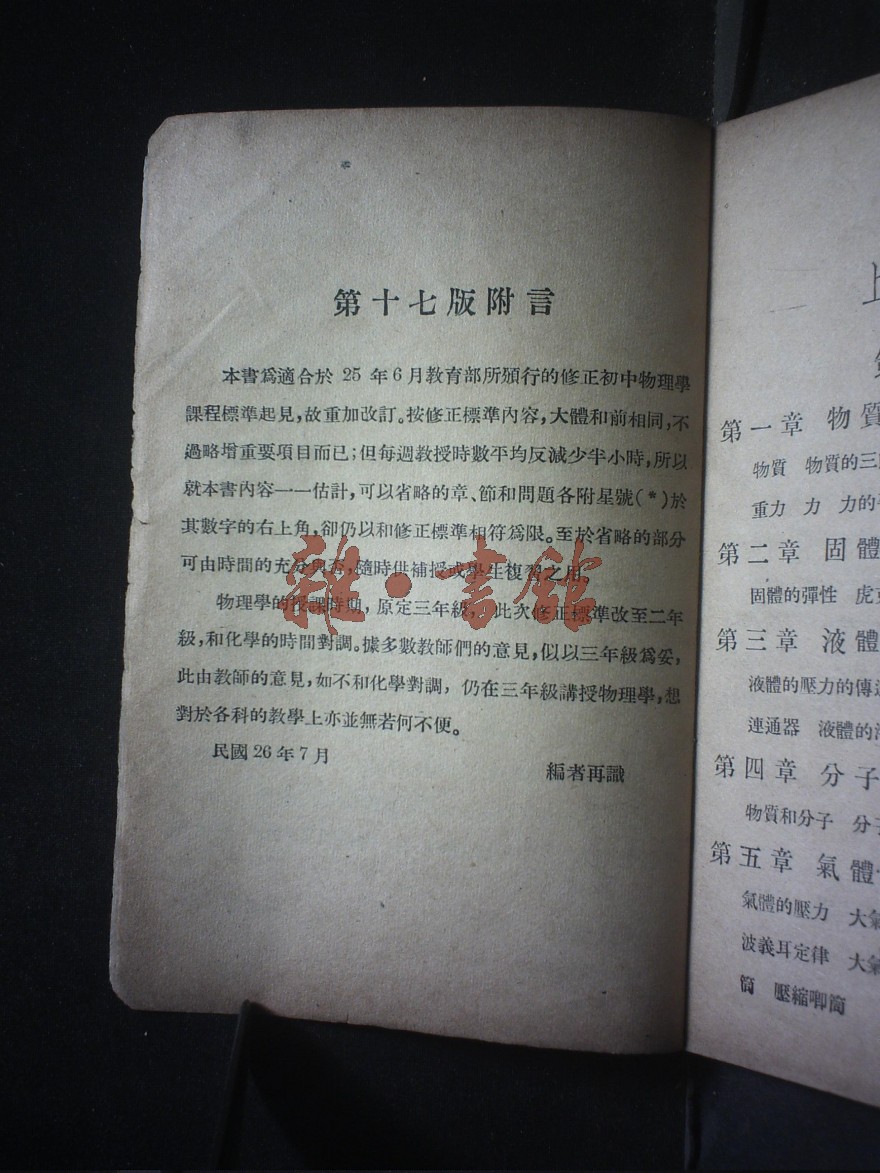 第十七版附言
本書爲適合於 25 年 6 月教育部所頒行的修正初中物理學
課程標準起見，故重加改訂。按修正標準內容，大體和前相同，不
過略增重要項目而已；但每週教授時數平均反減少半小時，所以
就本書內容一一估計，可以省略的章、節和問題各附星號(*)於
其數字的右上角，卻仍以和修正標準相符爲限。至於省略的部分
可由時間的充分與否，隨時供補授或學生複習之用。
物理學的授課時期，原定三年級，此次修正標準改至二年
級，和化學的時間對調。據多數教師們的意見，似以三年級爲妥，
此由教師的意見，如不和化學對調，仍在三年級講授物理學，想
對於各科的教學上亦並無若何不便。
民國 26 年 7 月
編者再識
雜·書館
第一章 物質
物質 物質的三
重力 力 力的
第二章 固體
固體的彈性 虎
第三章 液體
液體的壓力的傳
連通器 液體的
第四章 分子
物質和分子 分子
第五章 氣體
氣體的壓力 大氣
波義耳定律 大氣
筒 壓縮唧筒